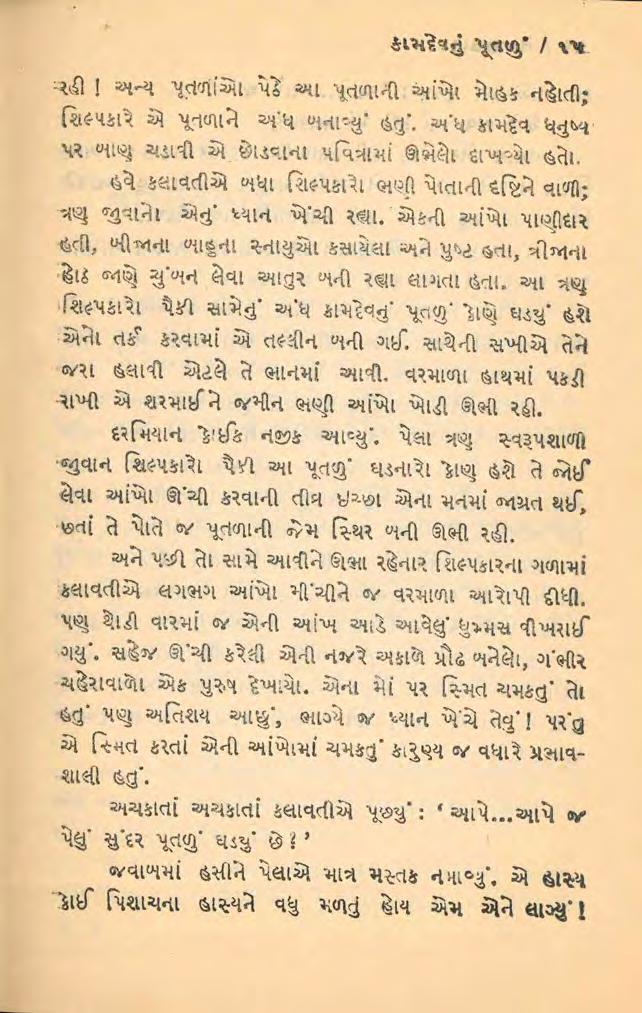 કામદેવનું પૂતળું / ૧૫
રહી ! અન્ય પૂતળાંઓ પેઠે આ પૂતળાની આંખો મોહક નહોતી;
શિલ્પકારે એ પૂતળાને અંધ બનાવ્યું હતું. અંધ કામદેવ ધનુષ્ય
પર બાણ ચડાવી એ છોડવાના પવિત્રામાં ઊભેલો દાખવ્યો હતો.
હવે કલાવતીએ બધા શિલ્પકારો ભણી પોતાની દૃષ્ટિને વાળી;
ત્રણ જુવાનો એનું ધ્યાન ખેંચી રહ્યા. એકની આંખો પાણીદાર
હતી, બીજાના બાહુના સ્નાયુઓ કસાયેલા અને પુષ્ટ હતા, ત્રીજાના
હોઠ જાણે ચુંબન લેવા આતુર બની રહ્યા લાગતા હતા. આ ત્રણ
શિલ્પકારો પૈકી સામેનું અંધ કામદેવનું પૂતળું કોણે ઘડ્યું હશે
એનો તર્ક કરવામાં એ તલ્લીન બની ગઈ. સાથેની સખીએ તેને
જરા હલાવી એટલે તે ભાનમાં આવી. વરમાળા હાથમાં પકડી
રાખી એ શરમાઈને જમીન ભણી આંખો ખોડી ઊભી રહી.
દરમિયાન કોઈક નજીક આવ્યું. પેલા ત્રણ સ્વરૂપશાળી
જુવાન શિલ્પકારો પૈકી આ પૂતળું ઘડનારો કોણ હશે તે જોઈ
લેવા આંખો ઊંચી કરવાની તીવ્ર ઇચ્છા એના મનમાં જાગ્રત થઈ,
છતાં તે પોતે જ પૂતળાની જેમ સ્થિર બની ઊભી રહી.
અને પછી તો સામે આવીને ઊભા રહેનાર શિલ્પકારના ગળામાં
કલાવતીએ લગભગ આંખો મીંચીને જ વરમાળા આરોપી દીધી.
પણ થોડી વારમાં જ એની આંખ આડે આવેલું ધુમ્મસ વીખરાઈ
ગયું. સહેજ ઊંચી કરેલી એની નજરે અકાળે પ્રૌઢ બનેલો, ગંભીર
ચહેરાવાળો એક પુરુષ દેખાયો. એના મોં પર સ્મિત ચમકતું તો
હતું પણ અતિશય આછું, ભાગ્યે જ ધ્યાન ખેંચે તેવું ! પરંતુ
એ સ્મિત કરતાં એની આંખોમાં ચમકતું કારુણ્ય જ વધારે પ્રભાવ-
શાલી હતું.
અચકાતાં અચકાતાં કલાવતીએ પૂછ્યું : ‘ આપે...આપે જ
પેલું સુંદર પૂતળું ઘડ્યું છે ? ’
જવાબમાં હસીને પેલાએ માત્ર મસ્તક નમાવ્યું. એ હાસ્ય
કોઈ પિશાચના હાસ્યને વધુ મળતું હોય એમ એને લાગ્યું !